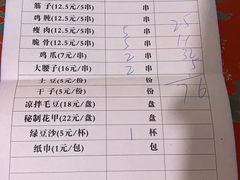 筋子(12.5元/5串) 串
鸡胗(12.5元/5串) 串
瘦肉(12.5元/5串) 5 串 25
脆骨(12.5元/5串) 5 串
鸡爪(7元/串) 2 串
大腰子(16元/串) 2 串
土豆(5元/份) 份
干子(5元/份) 份 76
凉拌毛豆(18元/盘) 盘
秘制花甲(22元/盘) 盘
绿豆沙(5元/杯) 1 杯
纸巾(1元/包) 包